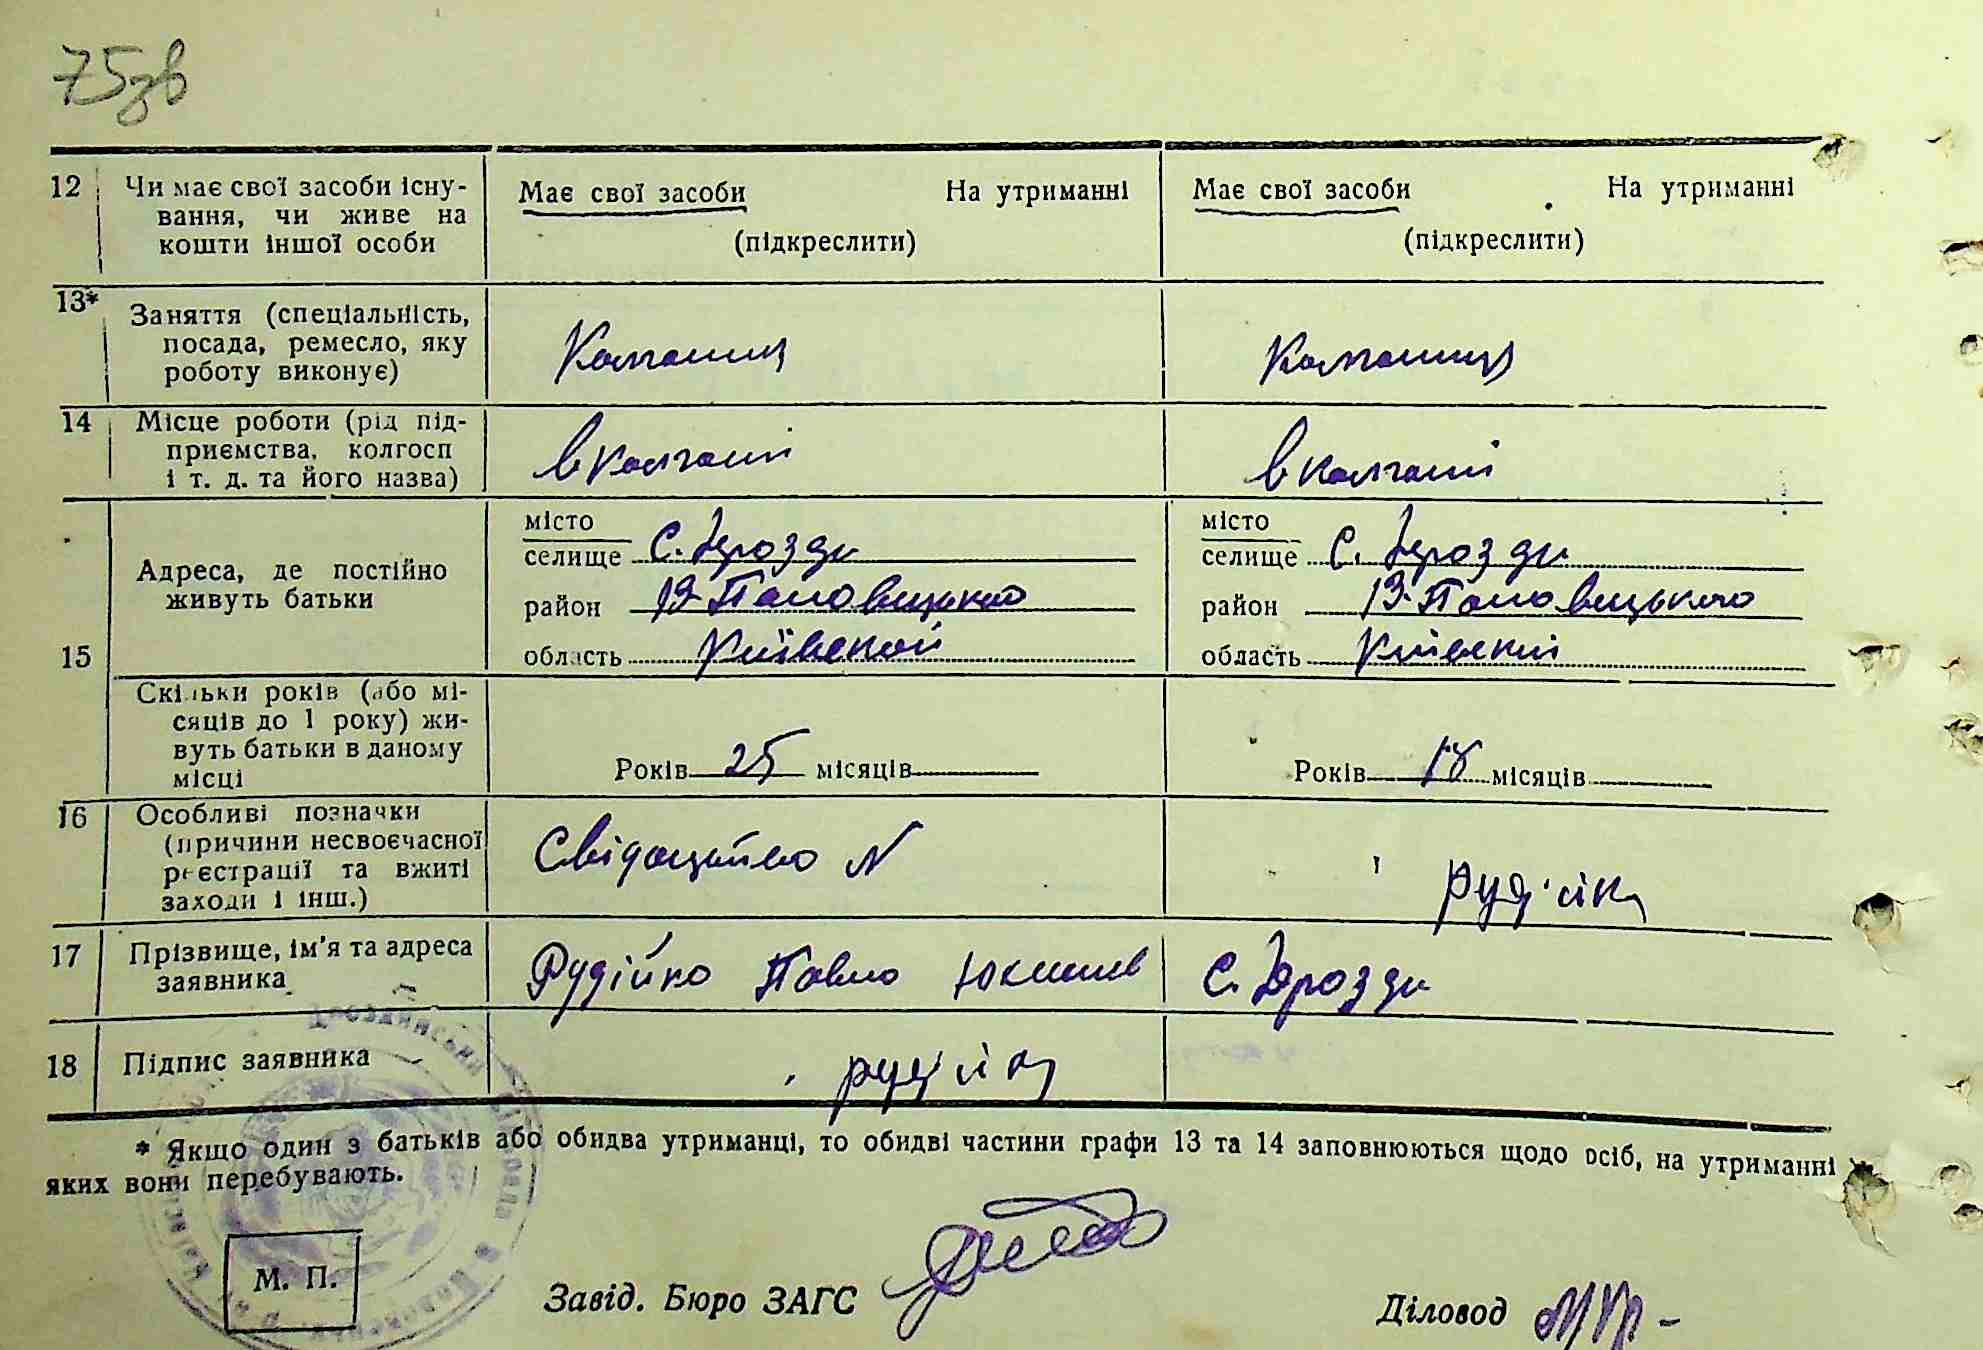 75зв
12 Чи має свої засоби існу-
вання, чи живе на
кошти іншої особи
Має свої засоби На утриманні
(підкреслити)
Має свої засоби На утриманні
(підкреслити)
13* Заняття (спеціальність,
посада, ремесло, яку
роботу виконує)
14 Місце роботи (рід під-
приємства, колгосп
і т. д. та його назва)
в колгоспі
в колгоспі
15
Адреса, де постійно
живуть батьки
місто
селище с. Дрозди
район
область Київской
місто
селище с. Дрозди
район
область Київскій
Скільки років (або мі-
сяців до 1 року) жи-
вуть батьки в даному
місці
Років 25 місяців
Років 18 місяців
16 Особливі позначки
(причини несвоєчасної
реєстрації та вжиті
заходи і інш.)
Свідоцтво N
17 Прізвище, ім'я та адреса
заявника
Рудійко Павло
с. Дрозди
18 Підпис заявника
* Якщо один з батьків або обидва утриманці, то обидві частини графи 13 та 14 заповнюються щодо осіб, на утриманні
яких вони перебувають.
М. П.
Завід. Бюро ЗАГС
Діловод